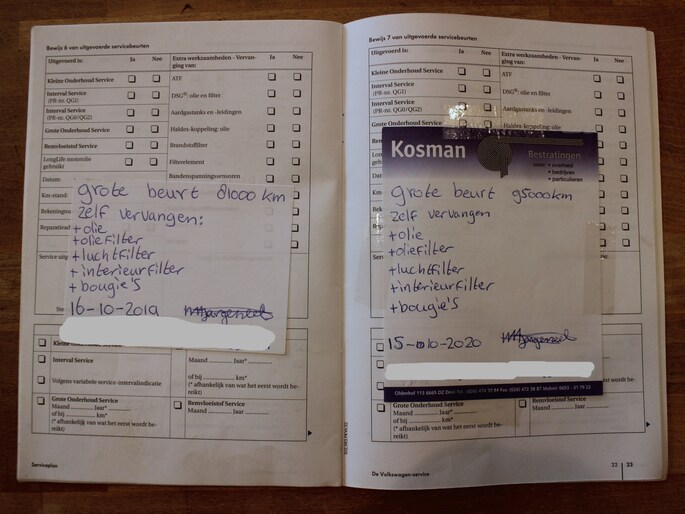 Bewijs 6 van uitgevoerde servicebeurten
Uitgevoerd is: Ja Nee
Extra werkzaamheden - Vervanging van: Ja Nee
Kleine Onderhoud Service
Interval Service
(PR-nr. QG1)
Interval Service
(PR-nr. QG0/QG2)
Grote Onderhoud Service
Remvloeistof Service
LongLife motorolie
gebruikt
Datum:
Km-stand:
ATF
DSG®: olie en filter
Aardgastanks en -leidingen
Haldex-koppeling: olie
Brandstoffilter
Filterelement
Bandenspanningssensoren
grote beurt 81000 km
zelf vervangen:
+olie
+oliefilter
+luchtfilter
+interieurfilter
+bougie's
16-10-2019
Interval Service
Volgens variabele service-intervalindicatie
Grote Onderhoud Service
Maand Jaar*
of bij km*
(* afhankelijk van wat het eerst wordt be-
reikt)
Maand Jaar*
of bij km*
(* afhankelijk van wat het eerst wordt be-
reikt)
Remvloeistof Service
Serviceplan
Bewijs 7 van uitgevoerde servicebeurten
Uitgevoerd is: Ja Nee
Extra werkzaamheden - Vervan-
ging van: Ja Nee
Kleine Onderhoud Service
Interval Service
(PR-nr. QG1)
Interval Service
(PR-nr. QG0/QG2)
ATF
DSG®: olie en filter
Aardgastanks en -leidingen
Haldex-koppeling: olie
Kosman
Bestratingen
• overheid
• bedrijven
• particulieren
grote beurt 95000km
zelf vervangen
+olie
+oliefilter
+luchtfilter
+interieurfilter
+bougie's
15-10-2020
Grote Onderhoud Service
Maand Jaar*
of bij km*
(* afhankelijk van wat het eerst wordt be-
reikt)
Remvloeistof Service
De Volkswagen-service
22 23